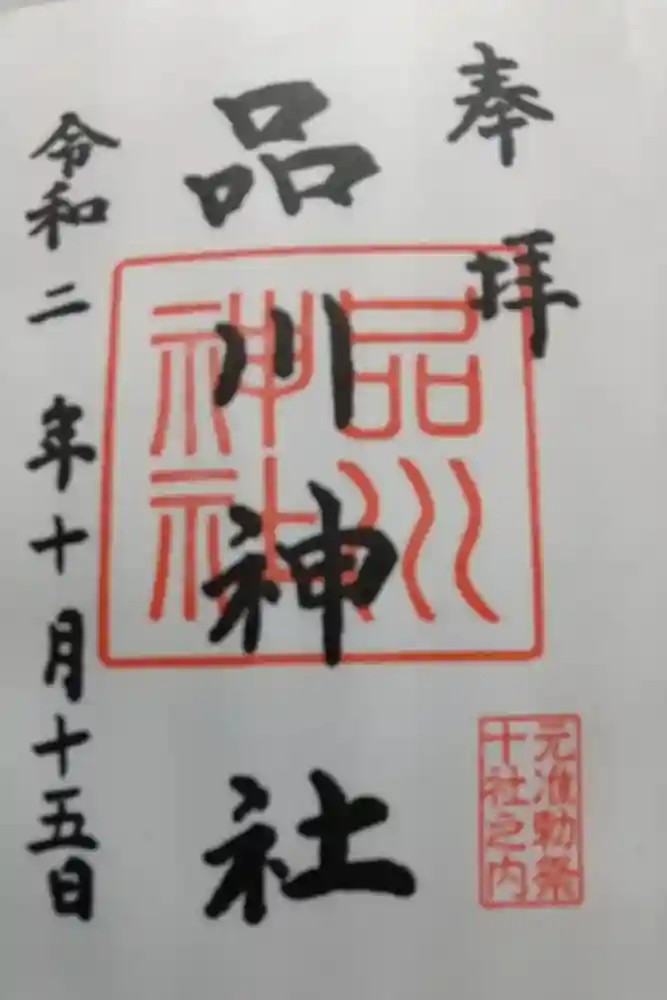 奉拝
品川神社
品川
神社
元准勅祭
十社之内
令和二年十月十五日